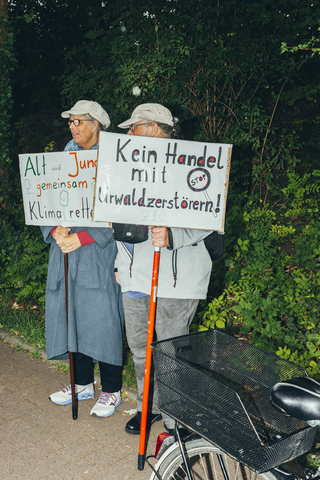 Alt und Jung
gemeinsam
Klima rette
Kein Handel
mit STOP
Urwaldzerstörern!